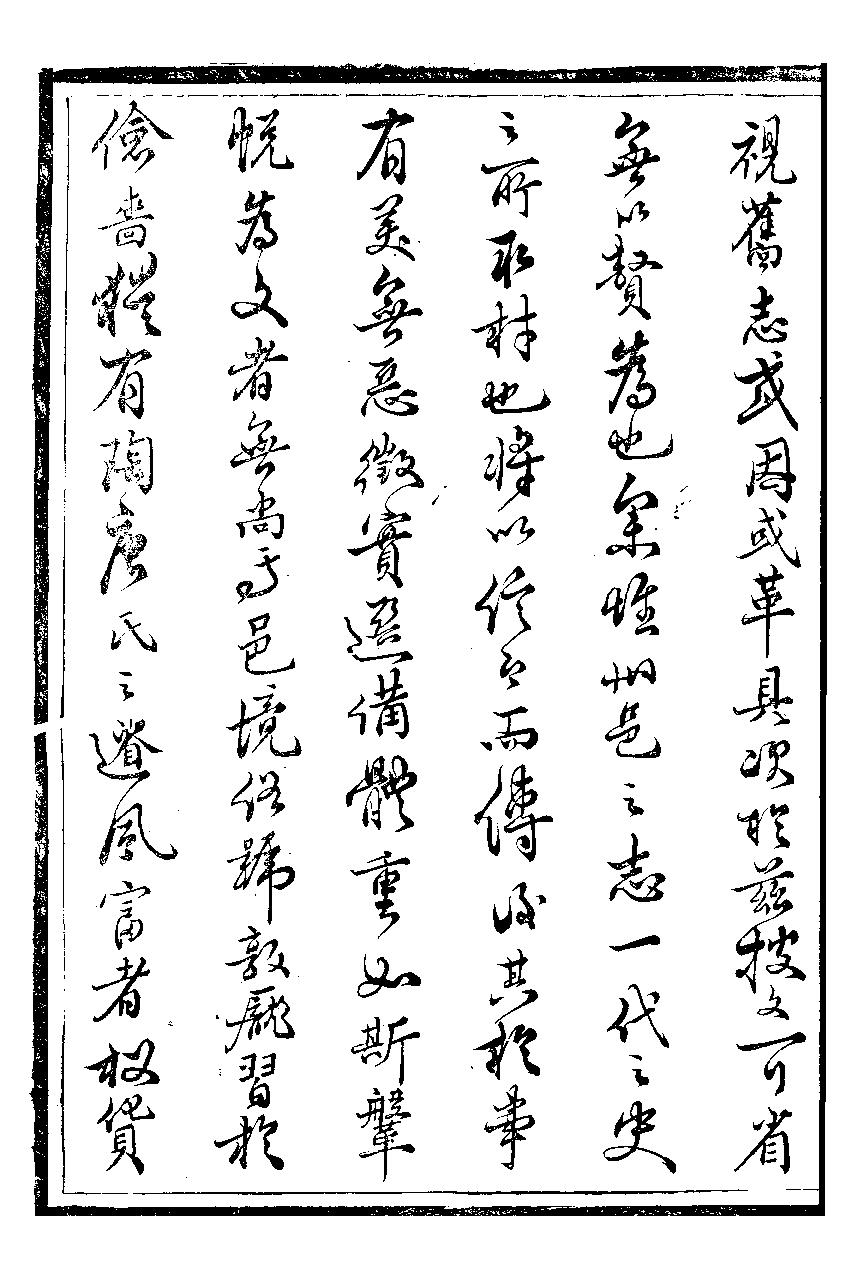 視舊志或因或革具次於茲披文可省
無以贅為也矧惟州邑之志一代之史
之所取材也將以信今而傳後其於事
有美無惡徵實選備體重如斯鞶
帨為文者無尚焉邑境俗號敦龐習於
儉嗇猶有陶唐氏之遺風富者權貨